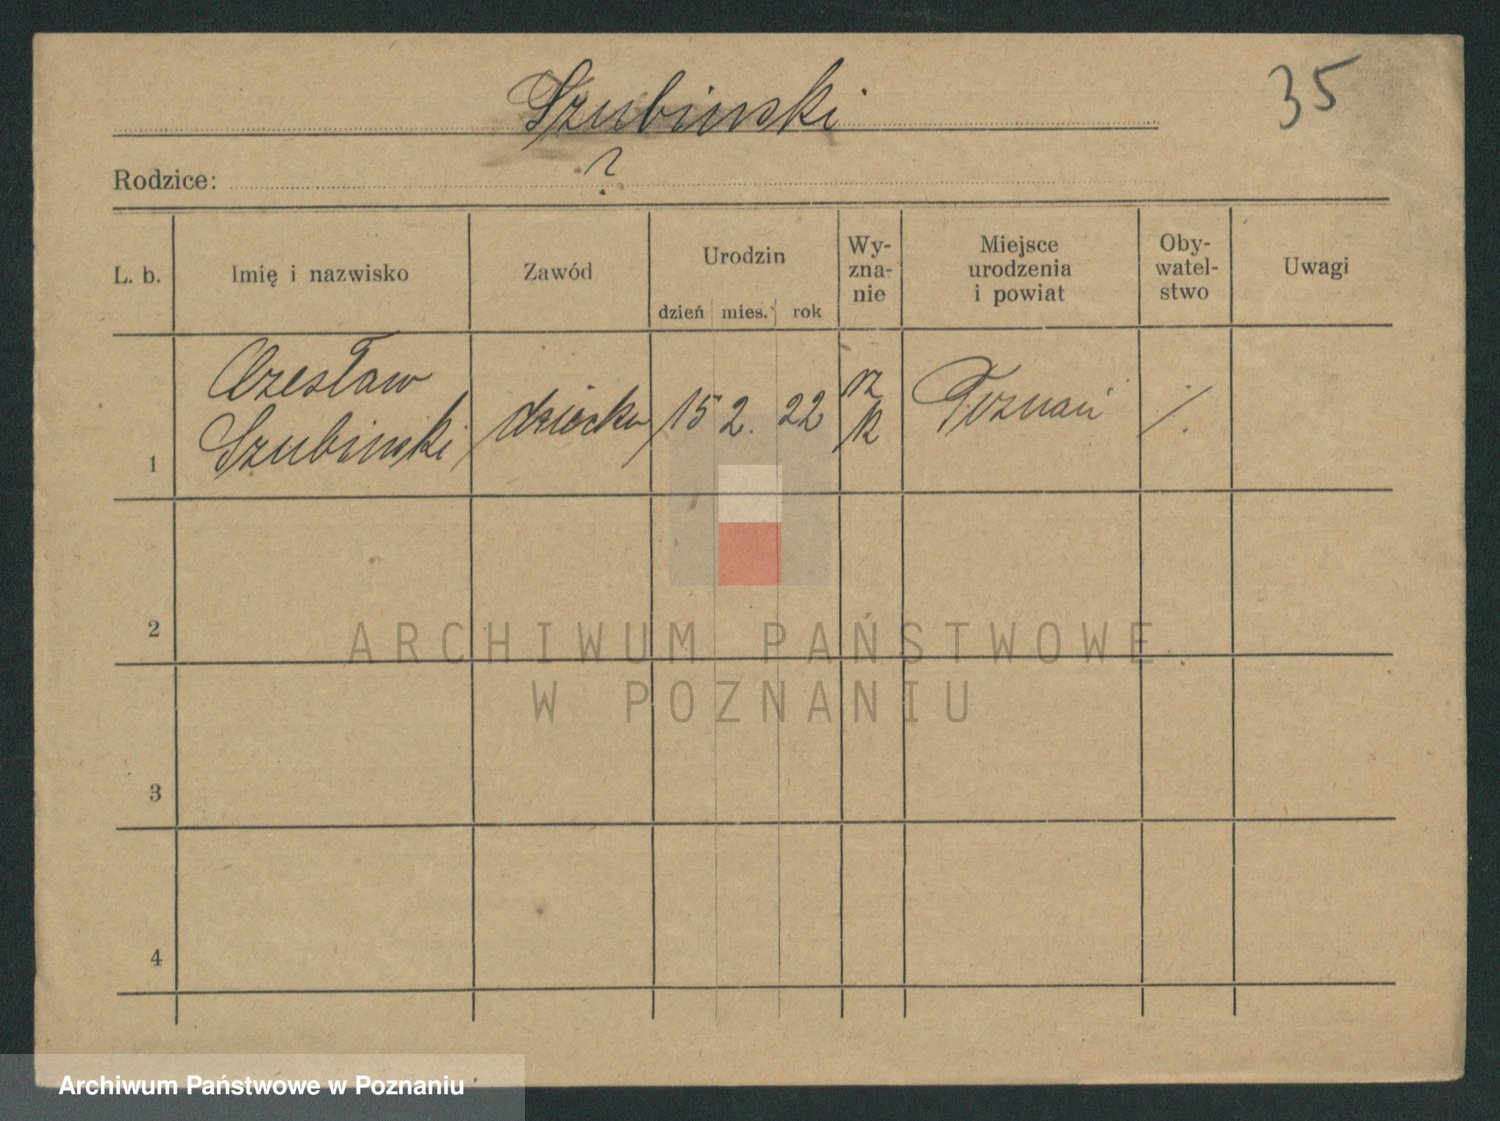 Szubinski
35
Rodzice: ?
L. b.
Imię i nazwisko
Zawód
Urodzin
dzień mies. rok
Wy-
zna-
nie
Miejsce
urodzenia
i powiat
Oby-
watel-
stwo
Uwagi
1
Czesław
Szubinski
dziecko
15 2. 22
rz
k
Poznań
2
3
4
ARCHIWUM PAŃSTWOWE
W POZNANIU
Archiwum Państwowe w Poznaniu